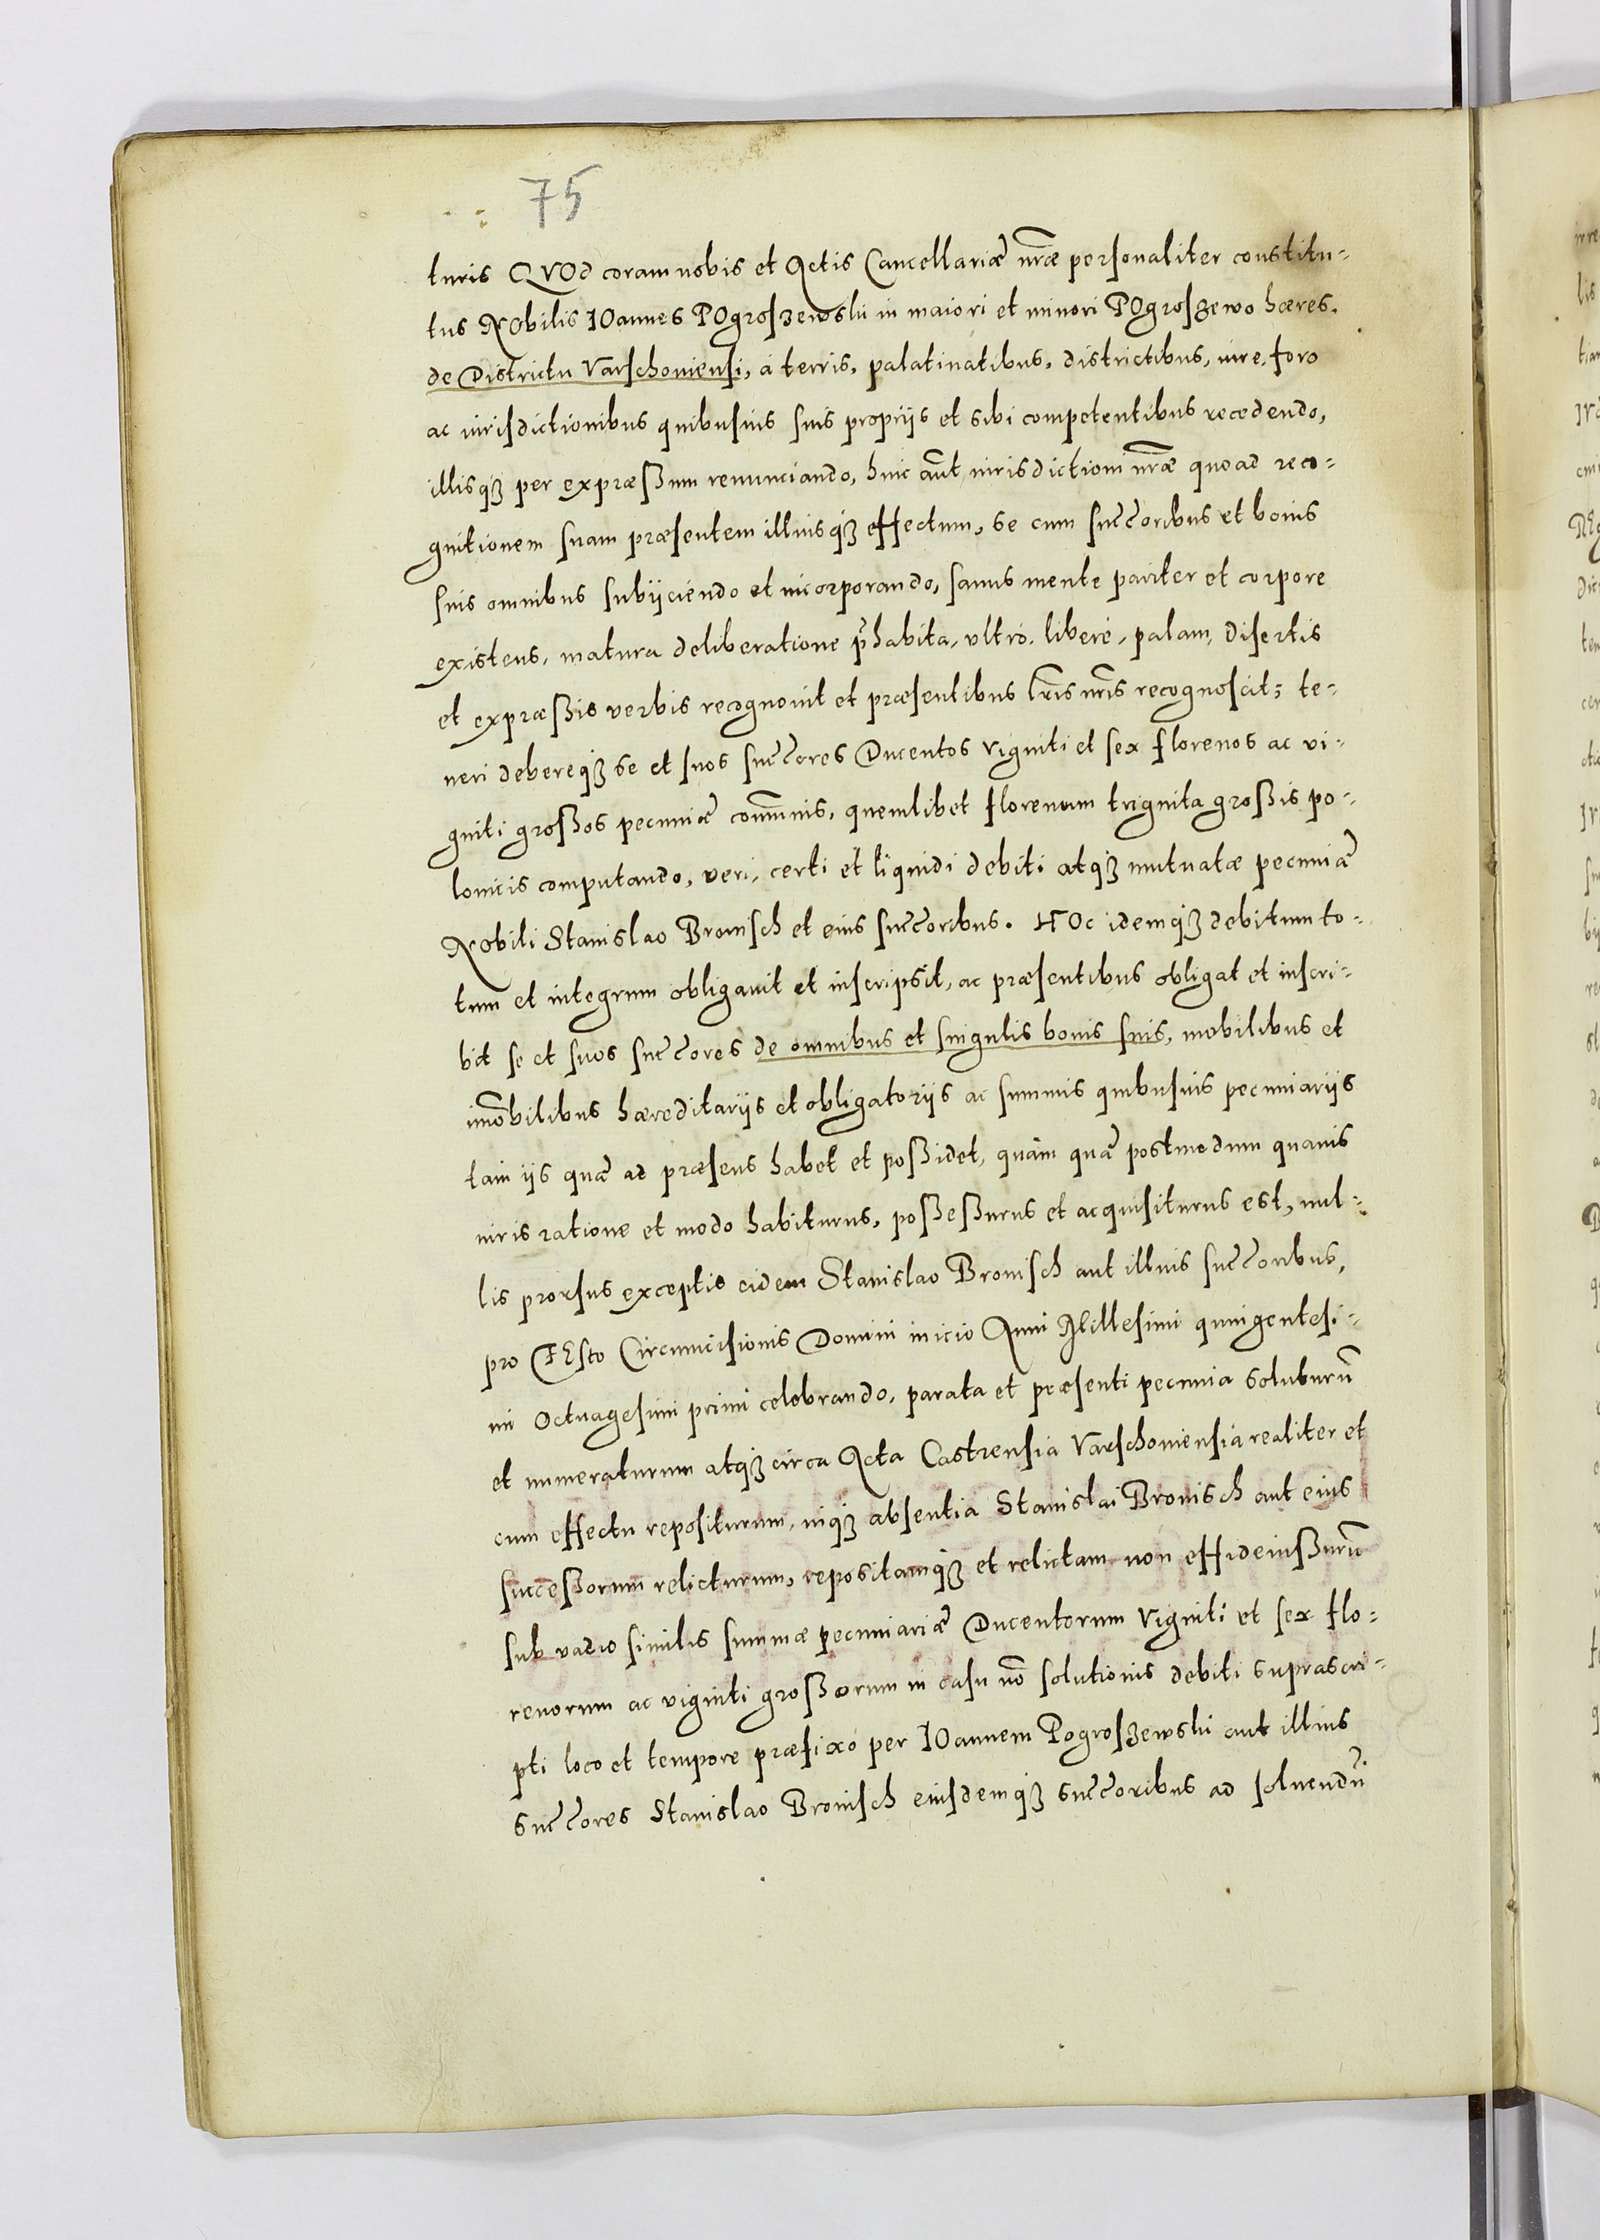 75
turis QVOd coram nobis et Actis Cancellariæ nr̃æ personaliter constitu-
tus NObilis IOannes POgroszewski in maiori et minori POgroszewo hæres.
de Districtu Varschouiensi, á terris, palatinatibus, districtibus, iure, foro
ac iurisdictionibus quibusuis suis proprijs et sibi competentibus recedendo,
illisq3 per expræßum renunciando, huic aũt iurisdictioni nr̃æ quoad reco-
gnitionem suam præsentem illiusq3 effectum, se cum succ̃oribus et bonis
suis omnibus subijciendo et incorporando, sanus mente pariter et corpore
existens, matura deliberatione p̃habita, vltró, liberé, palam, disertis
et expræßis verbis recognouit et præsentibus lr̃is nr̃is recognoscit; te-
neri debereq3 se et suos succ̃ores Ducentos viginti et sex florenos ac vi-
ginti großos pecuniæ com̃unis, quemlibet florenum triginta großis po-
lonicis computando, veri, certi et liquidi debiti atq3 mutuatæ pecuniæ
NObili Stanislao Bronisch et eius succ̃oribus. HOc idemq3 debitum to-
tum et integrum obligauit et inscripsit, ac præsentibus obligat et inscri-
bit se et suos succ̃ores de omnibus et singulis bonis suis, mobilibus et
im̃obilibus hæreditarijs et obligatorijs ac summis quibusuis pecuniarijs
tam ijs quæ ad præsens habet et poßidet, quàm quæ postmodum quauis
iuris ratione et modo habiturus, poßeßurus et acquisiturus est, nul-
lis prorsus exceptis eidem Stanislao Bronisch aut illius succ̃oribus,
pro FEsto Circumcisionis Domini inicio Anni Millesimi quingentesi-
mi Octuagesimi primi celebrando, parata et præsenti pecunia soluturũ
et numeraturum atq3 circa Acta Castrensia Varschouiensia realiter et
cum effectu repositurum, inq3 absentia Stanislai Bronisch aut eius
succeßorum relicturum, repositamq3 et relictam non effideiußurũ
sub vadio similis summæ pecuniariæ Ducentorum viginti et sex flo-
renorum ac viginti großorum in casu nõ solutionis debiti suprascri-
pti loco et tempore præfixo per IOannem Pogroszewski aut illius
succ̃ores Stanislao Bronisch eiusdemq3 succ̃oribus ad soluendũ